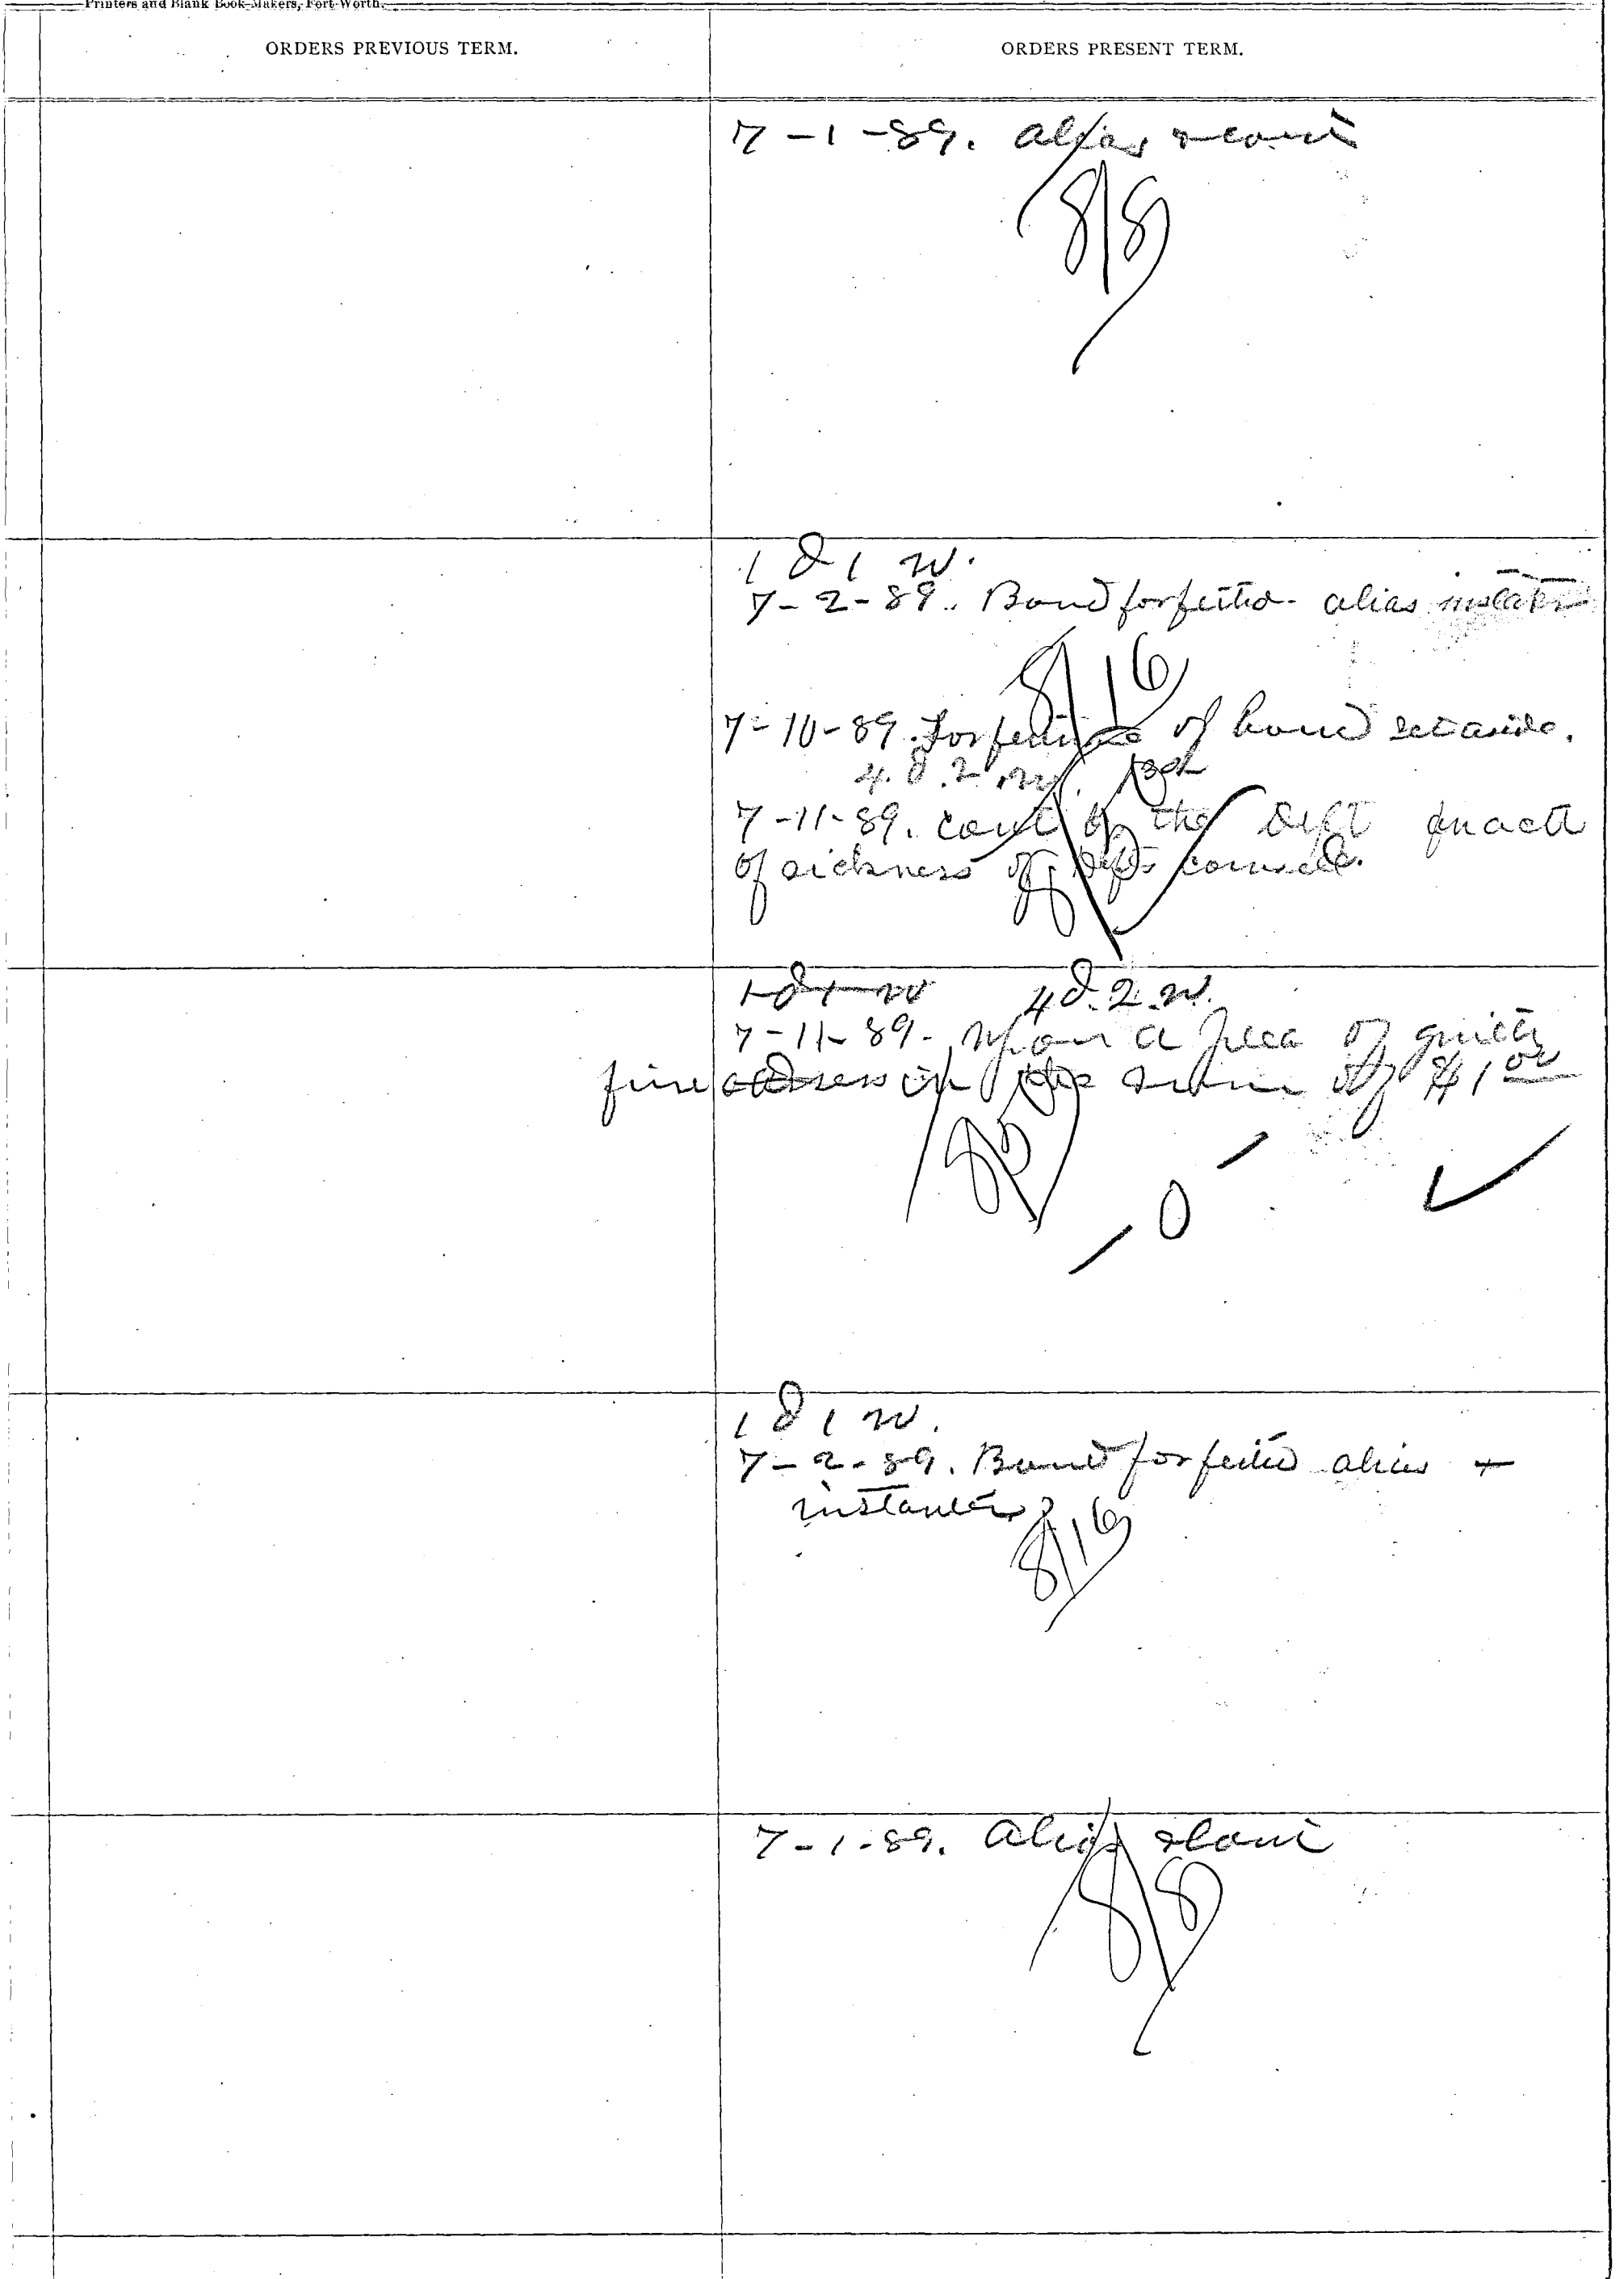 Printers and Blank Book-Makers, Fort Worth.
ORDERS PREVIOUS TERM.
ORDERS PRESENT TERM.
7-1-89. Alias & cont
8/8
1 D 1 W.
7-2-89. Bond forfeited. alias instanter
8/16
7-10-89. Forfeiture of bond set aside.
4. D. 2 W.
7-11-89. cont by the Deft on acct
of sickness of Defts counsel.
1 D 1 W 4 D. 2. W.
7-11-89. Upon a plea of guilty
fine assess in the sum of $1 00
1 D 1 W.
7-2-89. Bond forfeited alias +
instanter
8/16
7-1-89. Alias & cont
8/8